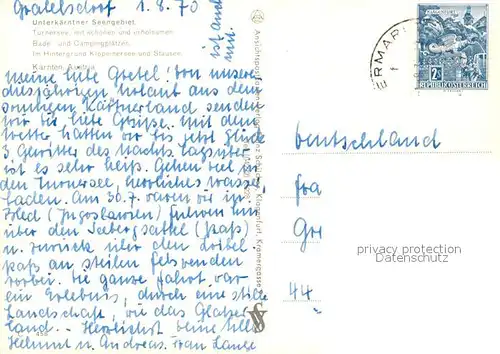 Grabelsdorf 1.8.70
Unterkärntner Seengebiet.
Turnersee, mit schönen und erholsamen
Bade- und Campingplätzen.
Im Hintergrund Klopeinersee und Stausee.
Kärnten, Austria
ist auch
mit.
Meine liebe Gretel! Von unserem
diesjährigen Urlaub aus dem
sonnigen Kärtnerland senden
wir dir liebe Grüße. Mit dem
Wetter hatten wir bis jetzt Glück
3 Gewitter des Nachts. Tagsüber
ist es sehr heiß. Gehen viel in
den Turnersee, herrliches Wasser,
baden. Am 30.7. waren wir in
Bled (Jugoslawien) fuhren
über den Seebergsattel (paß)
u. zurück über den Loibel-
paß an steilen Felswenden
vorbei. Die ganze Fahrt war
ein Erlebnis, durch eine stille
Landschaft, wie das Glatzer-
land. - Herzlichst Deine
Helmut u. Andreas. Frau Lange
REPUBLIK ÖSTERREICH
Deutschland
Fra
Gr
44
privacy protection
watermark